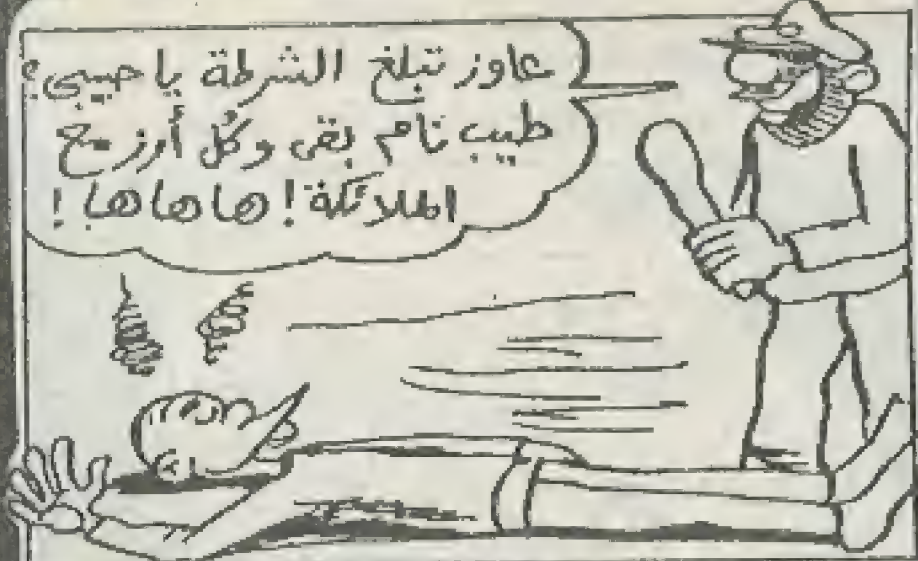 عاوز تبلغ الشرطة يا حبيبي؟
طيب نام بقى وكل أرز مع
الملائكة! ها ها ها!